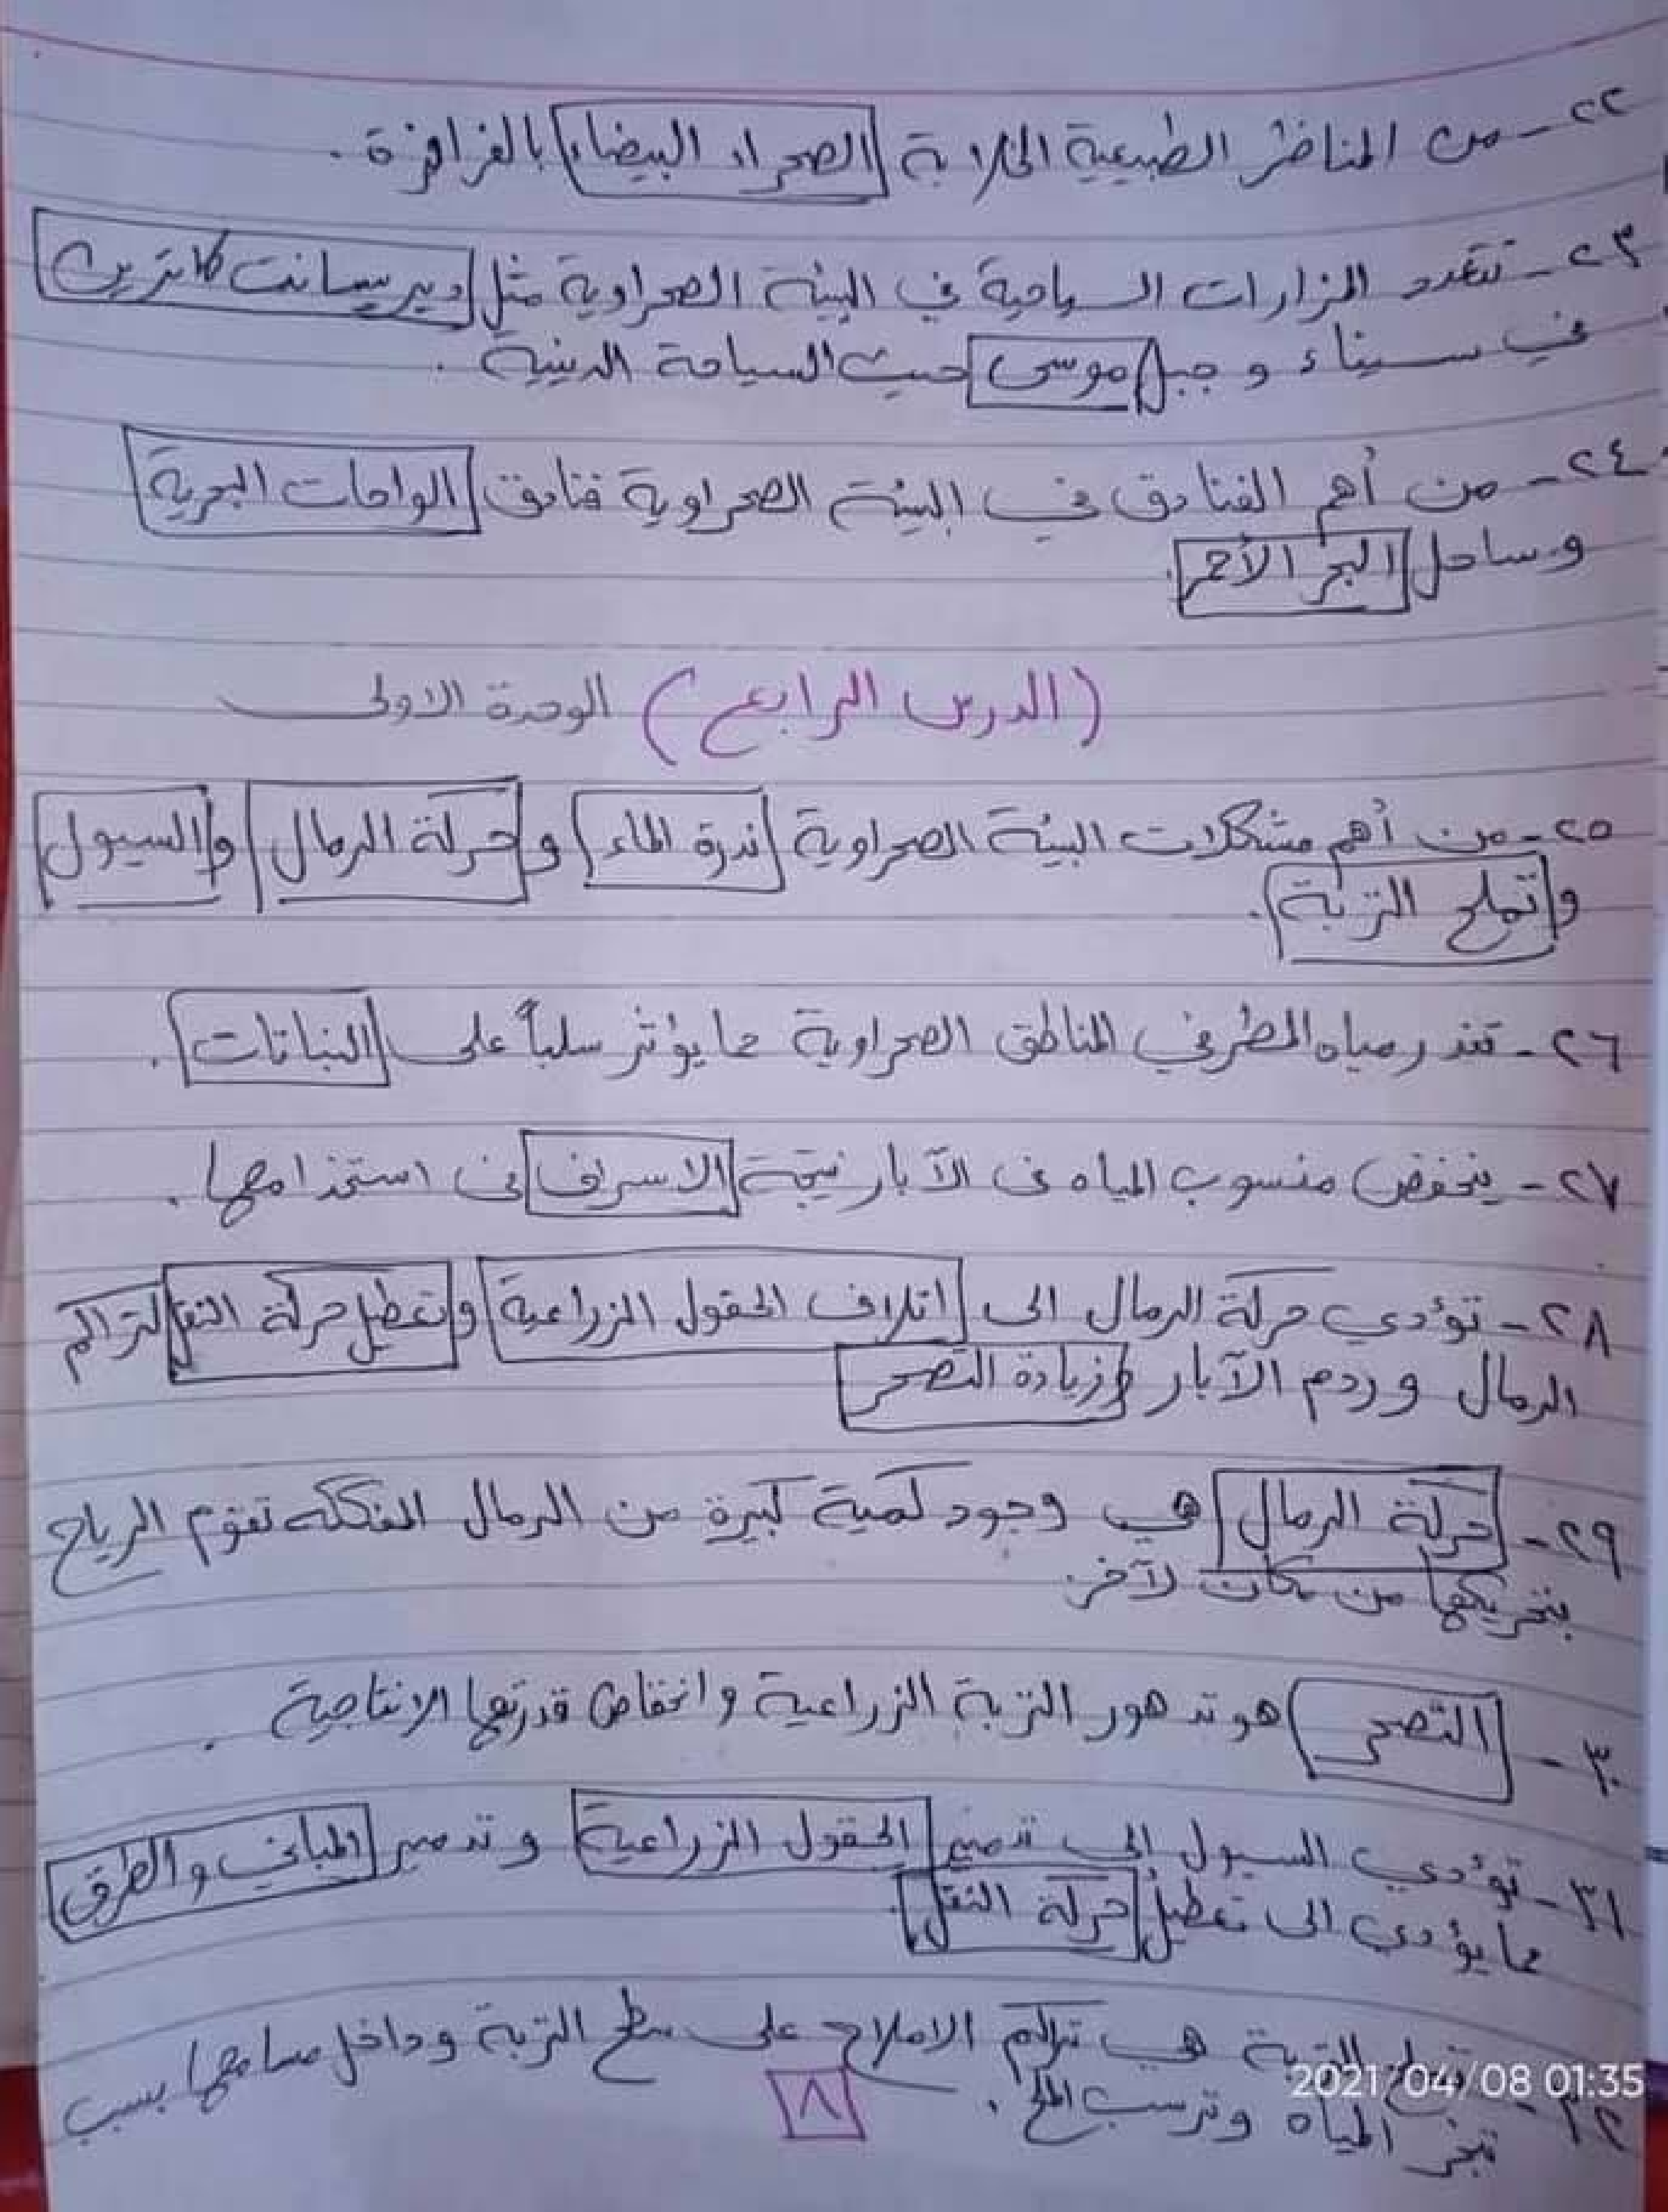 ٢٢- من المناظر الطبيعية الخلابة الصحراء البيضاء بالفرافرة.
٢٣- تتعدد المزارات السياحية في البيئة الصحراوية مثل دير سانت كاترين
في سيناء و جبل موسى حيث السياحة الدينية.
٢٤- من أهم الفنادق في البيئة الصحراوية فنادق الواحات البحرية
وساحل البحر الأحمر.
(الدرس الرابع) الوحدة الاولى
٢٥- من أهم مشكلات البيئة الصحراوية ندرة الماء و حركة الرمال والسيول
وتملح التربة.
٢٦- تندر مياه المطر في المناطق الصحراوية مما يؤثر سلباً على النباتات.
٢٧- ينخفض منسوب المياه فى الآبار نتيجة الاسراف فى استخدامها.
٢٨- تؤدي حركة الرمال الى اتلاف الحقول الزراعية وتعطيل حركة النقل لتراكم
الرمال وردم الآبار وزيادة التصحر
٢٩- حركة الرمال هي وجود كمية كبيرة من الرمال المفككه تقوم الرياح
بتحريكها من مكان لآخر.
٣٠- التصحر هو تدهور التربة الزراعية وانخفاض قدرتها الانتاجية.
٣١- تؤدي السيول إلى تدمير الحقول الزراعية وتدمير المباني والطرق
مما يؤدي الى تعطيل حركة النقل.
٣٢- تملح التربة هي تراكم الاملاح على سطح التربة وداخل مسامها بسبب
تبخر المياه وترسب الملح.
٨
2021/04/08 01:35